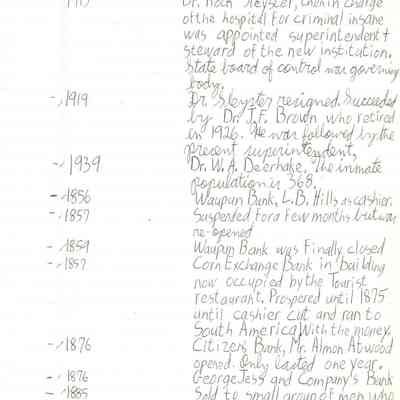 Dr. Rock Sleyster, then in charge
of the hospital for criminal insane
was appointed superintendent &
steward of the new institution.
State board of control was governing
body.
- 1919 Dr. Sleyster resigned. Succeeded
by Dr. J.F. Brown, who retired
in 1926. He was followed by the
present superintendent,
- 1939 Dr. W.A. Deerhake. The inmate
population is 368.
- 1856 Waupun Bank, L.B. Hills as cashier.
- 1857 Suspended for a few months but was
re-opened
- 1859 Waupun Bank was finally closed
- 1857 Corn Exchange Bank in building
now occupied by the Tourist
restaurant. Prospered until 1875
until cashier cut and ran to
South America with the money.
- 1876 Citizens Bank, Mr. Almon Atwood
opened. Only lasted one year.
- 1876 George Jess and Company's Bank
- 1885 Sold to small group of men who